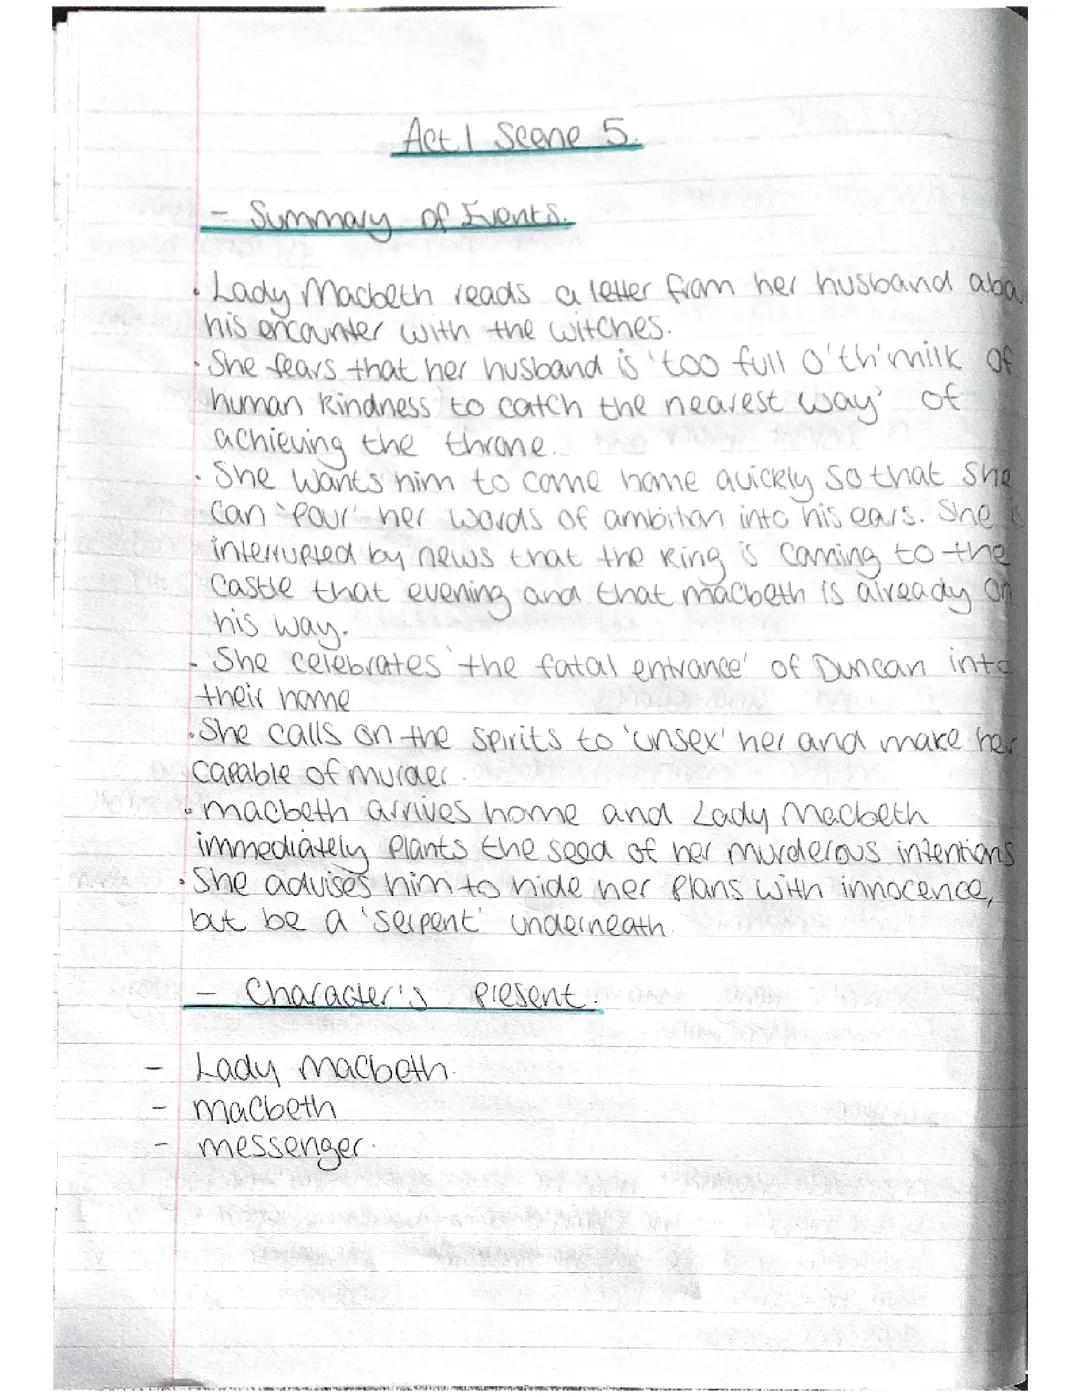 Act 1 Scene 5.
- Summary of Events.
• Lady Macbeth reads a letter from her husband abou
his encounter with the witches.
• She fears that her husband is 'too full o'th'milk of
human kindness to catch the nearest way' of
achieving the throne.
• She wants him to come home quickly so that she
can 'pour' her words of ambition into his ears. She is
interrupted by news that the king is coming to the
castle that evening and that macbeth is already on
his way.
- She celebrates 'the fatal entrance' of Duncan into
their home
• She calls on the spirits to 'unsex' her and make her
capable of murder.
• macbeth arrives home and Lady Macbeth
immediately plants the seed of her murderous intentions
• She advises him to hide her plans with innocence,
but be a 'serpent' underneath.
- Character's present.
- Lady macbeth.
- macbeth
- messenger.